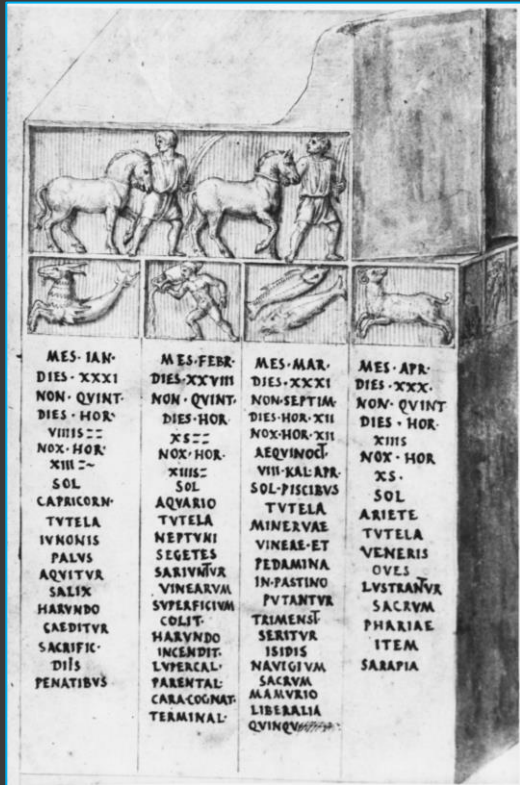 MES·IAN·
DIES·XXXI
NON·QVINT·
DIES·HOR·
VIIIIS::
NOX·HOR·
XIII:~
SOL
CAPRICORN·
TVTELA
IVNONIS
PALVS
AQVITVR
SALIX
HARVNDO
CAEDITVR
SACRIFIC·
DIIS
PENATIBVS
MES·FEBR·
DIES·XXVIII
NON·QVINT·
DIES·HOR
XS::
NOX·HOR·
XIIIS:
SOL
AQVARIO
TVTELA
NEPTVNI
SEGETES
SARIVNTVR
VINEARVM
SVPERFICIVM
COLIT·
HARVNDO
INCENDIT·
LVPERCAL·
PARENTAL·
CARA·COGNAT·
TERMINAL·
MES·MAR·
DIES·XXXI
NON·SEPTIM·
DIES·HOR·XII
NOX·HOR·XII
AEQVINOCT·
VIII·KAL·APR·
SOL·PISCIBVS
TVTELA
MINERVAE
VINEAE·ET
PEDAMINA
IN·PASTINO
PVTANTVR
TRIMENST·
SERITVR
ISIDIS
NAVIGIVM
SACRVM
MAMVRIO
LIBERALIA
QVINQV
MES·APR·
DIES·XXX·
NON·QVINT
DIES·HOR·
XIIIS
NOX·HOR
XS·
SOL
ARIETE
TVTELA
VENERIS
OVES
LVSTRANTVR
SACRVM
PHARIAE
ITEM
SARAPIA